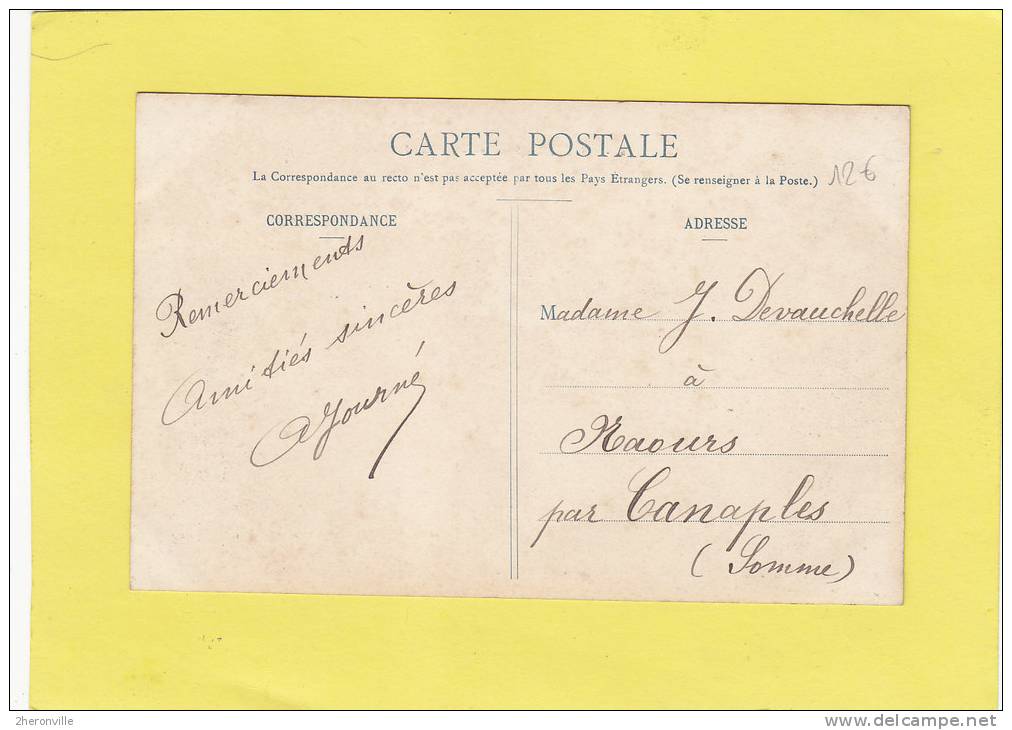 CARTE POSTALE
La Correspondance au recto n'est pas acceptée par tous les Pays Étrangers. (Se renseigner à la Poste.)
12€
CORRESPONDANCE
Remerciements
Amitiés sincères
A Journé
ADRESSE
Madame J. Devauchelle
à
Naours
par Canaples
(Somme)
2heronville
www.delcampe.net